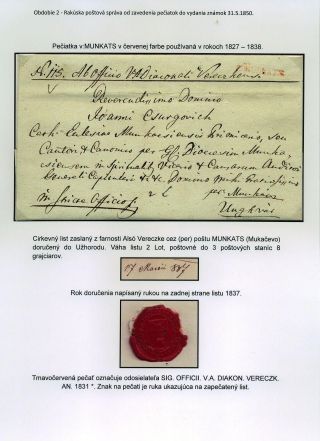 Obdobie 2 - Rakúska poštová správa od zavedenia pečiatok do vydania známok 31.5.1850.
Pečiatka v:MUNKATS v červenej farbe používaná v rokoch 1827 – 1838.
Ab Officio V.A. Diaconati Vereczkensi
Reverendissimo Domino
Joanni Csurgovich
Cath. Eclesiae Munkacsiensis
Cantori & Canonico per Gr. Diocesim Munka
csiensem in Spiritualibus Vicario & Causarum
2 L per Munkács
in Suiae Officiosis Unghvár
Cirkevný list zaslaný z farnosti Alsó Vereczke cez (per) poštu MUNKATS (Mukačevo)
doručený do Užhorodu. Váha listu 2 Lot, poštovné do 3 poštových staníc 8
grajciarov.
17 Martii 837
Rok doručenia napísaný rukou na zadnej strane listu 1837.
Tmavočervená pečať označuje odosielateľa SIG. OFFICII. V.A. DIAKON. VERECZK.
AN. 1831 *. Znak na pečati je ruka ukazujúca na zapečatený list.